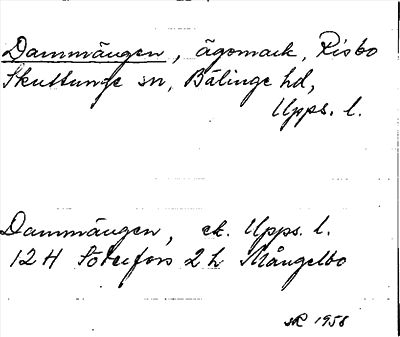 Dammängen, ägomark, Risbo
Skuttunge sn, Bälinge hd,
Upps. l.
Dammängen, ek. Upps. l.
12 H Söderfors 2 h Mångelbo
NR 1958